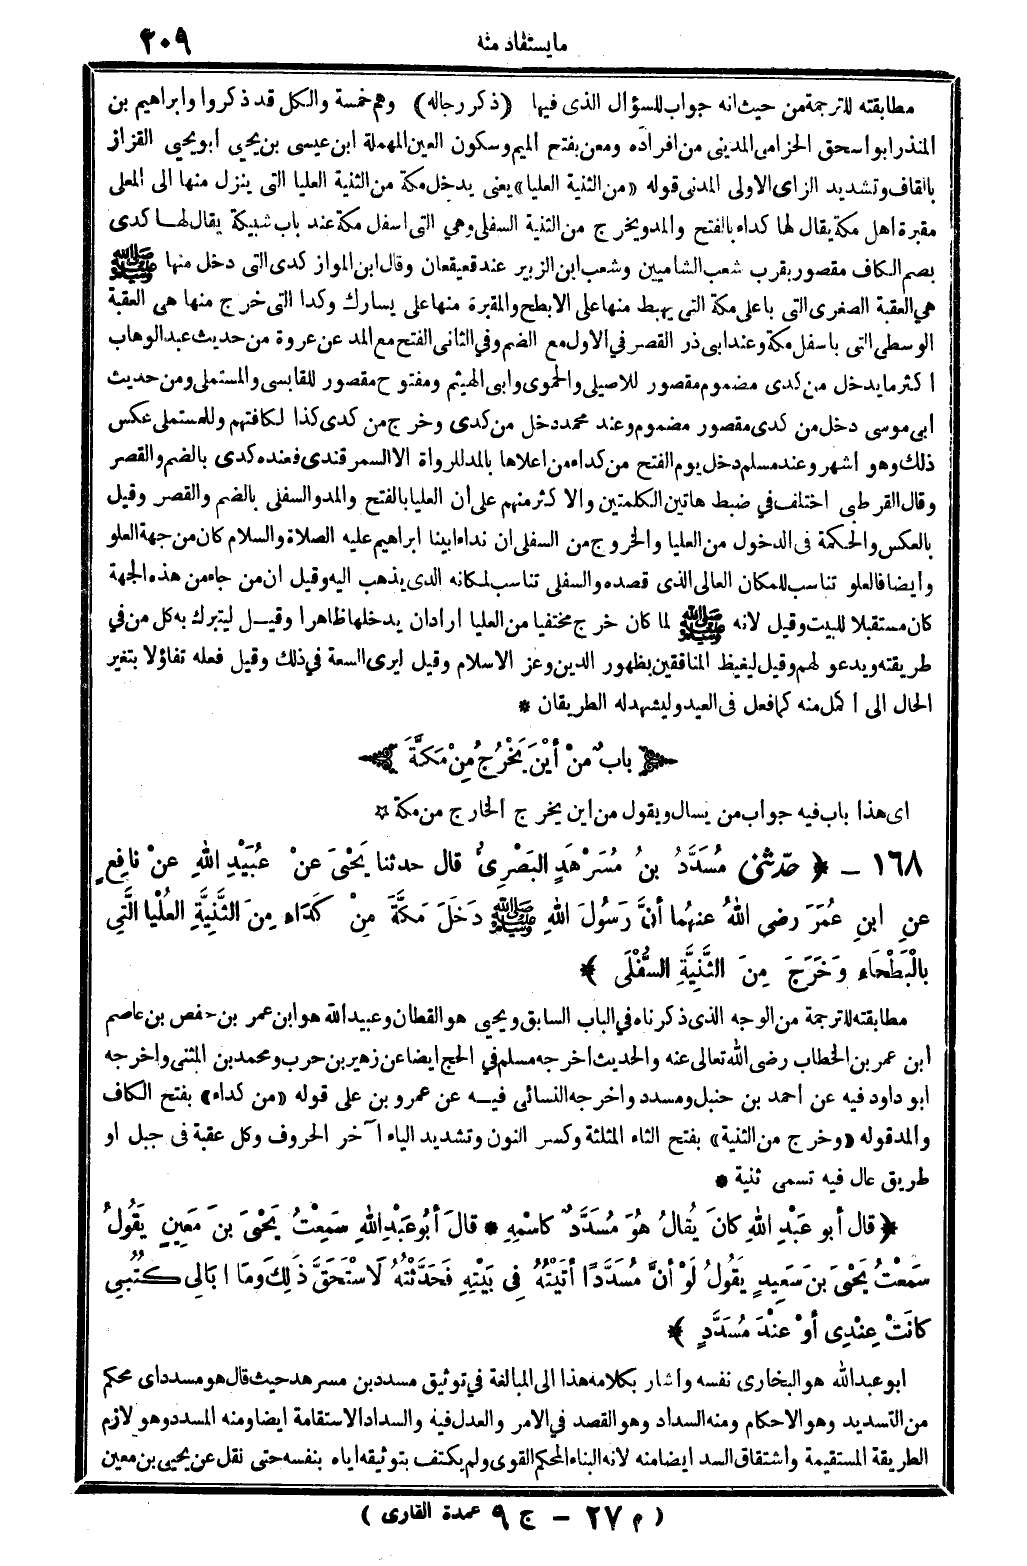 مايستفاد منه
٢٠٩
مطابقته للترجمة من حيث انه جواب للسؤال الذى فيها (ذكر رجاله) وهم خمسة والكل قد ذكروا وابراهيم بن
المنذر ابو اسحق الحزامى المدينى من افراده ومعن بفتح الميم وسكون العين المهملة ابن عيسى بن يحيى أبو يحيى القزاز
بالقاف وتشديد الزاى الاولى المدنى قوله «من الثنية العليا» يعنى يدخل مكة من الثنية العليا التى ينزل منها الى المعلى
مقبرة اهل مكة يقال لها كداء بالفتح والمد ويخرج من الثنية السفلى وهي التى اسفل مكة عند باب شبيكة يقال لها كدى
بصم الكاف مقصور بقرب شعب الشاميين وشعب ابن الزبير عند قعيقعان وقال ابن المواز كدى التى دخل منها ﷺ
هي العقبة الصغرى التى باعلى مكة التى يهبط منها على الابطح والمقبرة منها على يسارك وكدا التى خرج منها هى العقبة
الوسطى التى باسفل مكة وعند ابى ذر القصر في الاول مع الضم وفي الثانى الفتح مع المد عن عروة من حديث عبد الوهاب
اكثر ما يدخل من كدى مضموم مقصور للاصيلى والحموى وابى الهيثم ومفتوح مقصور للقابسى والمستملى ومن حديث
ابى موسى دخل من كدى مقصور مضموم وعند محمد دخل من كدى وخرج من كدى كذا لكافتهم وللمستملى عكس
ذلك وهو اشهر وعند مسلم دخل يوم الفتح من كداء من اعلاها بالمد للرواة الا السمرقندى فعنده كدى بالضم والقصر
وقال القرطبى اختلف في ضبط هاتين الكلمتين والاكثر منهم على أن العليا بالفتح والمد والسفلى بالضم والقصر وقيل
بالعكس والحكمة فى الدخول من العليا والخروج من السفلى ان نداء ابينا ابراهيم عليه الصلاة والسلام كان من جهة العلو
وأيضا فالعلو تناسب للمكان العالى الذى قصده والسفلى تناسب لمكانه الذى يذهب اليه وقيل ان من جاء من هذه الجهة
كان مستقبلا للبيت وقيل لانه ﷺ لما كان خرج مختفيا من العليا ارادان يدخلها ظاهرا وقيل ليتبرك به كل من في
طريقته ويدعو لهم وقيل ليغيظ المنافقين بظهور الدين وعز الاسلام وقيل ليرى السعة في ذلك وقيل فعله تفاؤلا بتغير
الحال الى اكمل منه كما فعل فى العيد وليشهد له الطريقان *
باب من أين يخرج من مكة
اى هذا باب فيه جواب من يسال ويقول من اين يخرج الخارج من مكة ☆
١٦٨ – ﴿ حدثنى مُسَدَّدُ بنُ مُسَرْهَدٍ البَصْرِىُّ قال حدثنا يَحْيَى عنْ عُبَيْدِ اللهِ عنْ نافِعٍ
عنِ ابنِ عُمَرَ رضى اللهُ عنهُما أنَّ رَسُولَ اللهِ ﷺ دَخَلَ مَكَّةَ مِنْ كَدَاءٍ مِنَ الثَّنِيَّةِ العُلْيا الَّتِي
بالْبَطْحَاءِ وَخَرَجَ مِنَ الثَّنِيَّةِ السُّفْلَى ﴾
مطابقته للترجمة من الوجه الذى ذكرناه في الباب السابق ويحيى هو القطان وعبيد الله هو ابن عمر بن حفص بن عاصم
ابن عمر بن الخطاب رضى الله تعالى عنه والحديث اخرجه مسلم في الحج ايضا عن زهير بن حرب ومحمد بن المثنى واخرجه
ابو داود فيه عن احمد بن حنبل ومسدد واخرجه النسائى فيه عن عمرو بن على قوله «من كداء» بفتح الكاف
والمد قوله «وخرج من الثنية» بفتح الثاء المثلثة وكسر النون وتشديد الياء آخر الحروف وكل عقبة فى جبل او
طريق عال فيه تسمى ثنية *
﴿ قال أبو عَبْدِ اللهِ كانَ يُقالُ هُوَ مُسَدَّدٌ كاسْمِهِ * قالَ أبُو عَبْدِ اللهِ سَمِعْتُ يَحْيَى بنَ مَعِينٍ يَقُولُ
سَمعْتُ يَحْيَى بنَ سَعِيدٍ يَقُولُ لَوْ أنَّ مُسَدَّدًا أتَيْتُهُ فى بَيْتِهِ فَحَدَّثْتُهُ لَاسْتَحَقَّ ذَلِكَ ومَا ابَالى كُتُبي
كانَتْ عِنْدِى أوْ عنْدَ مُسَدَّدٍ ﴾
ابو عبد الله هو البخارى نفسه واشار بكلامه هذا الى المبالغة في توثيق مسدد بن مسرهد حيث قال هو مسدد اى محكم
من التسديد وهو الاحكام ومنه السداد وهو القصد في الامر والعدل فيه والسداد الاستقامة ايضا ومنه المسدد وهو لازم
الطريقة المستقيمة واشتقاق السد ايضا منه لانه البناء المحكم القوى ولم يكتف بتوثيقه اياه بنفسه حتى نقل عن يحيى بن معين
( م ٢٧ – ج ٩ عمدة القارى )